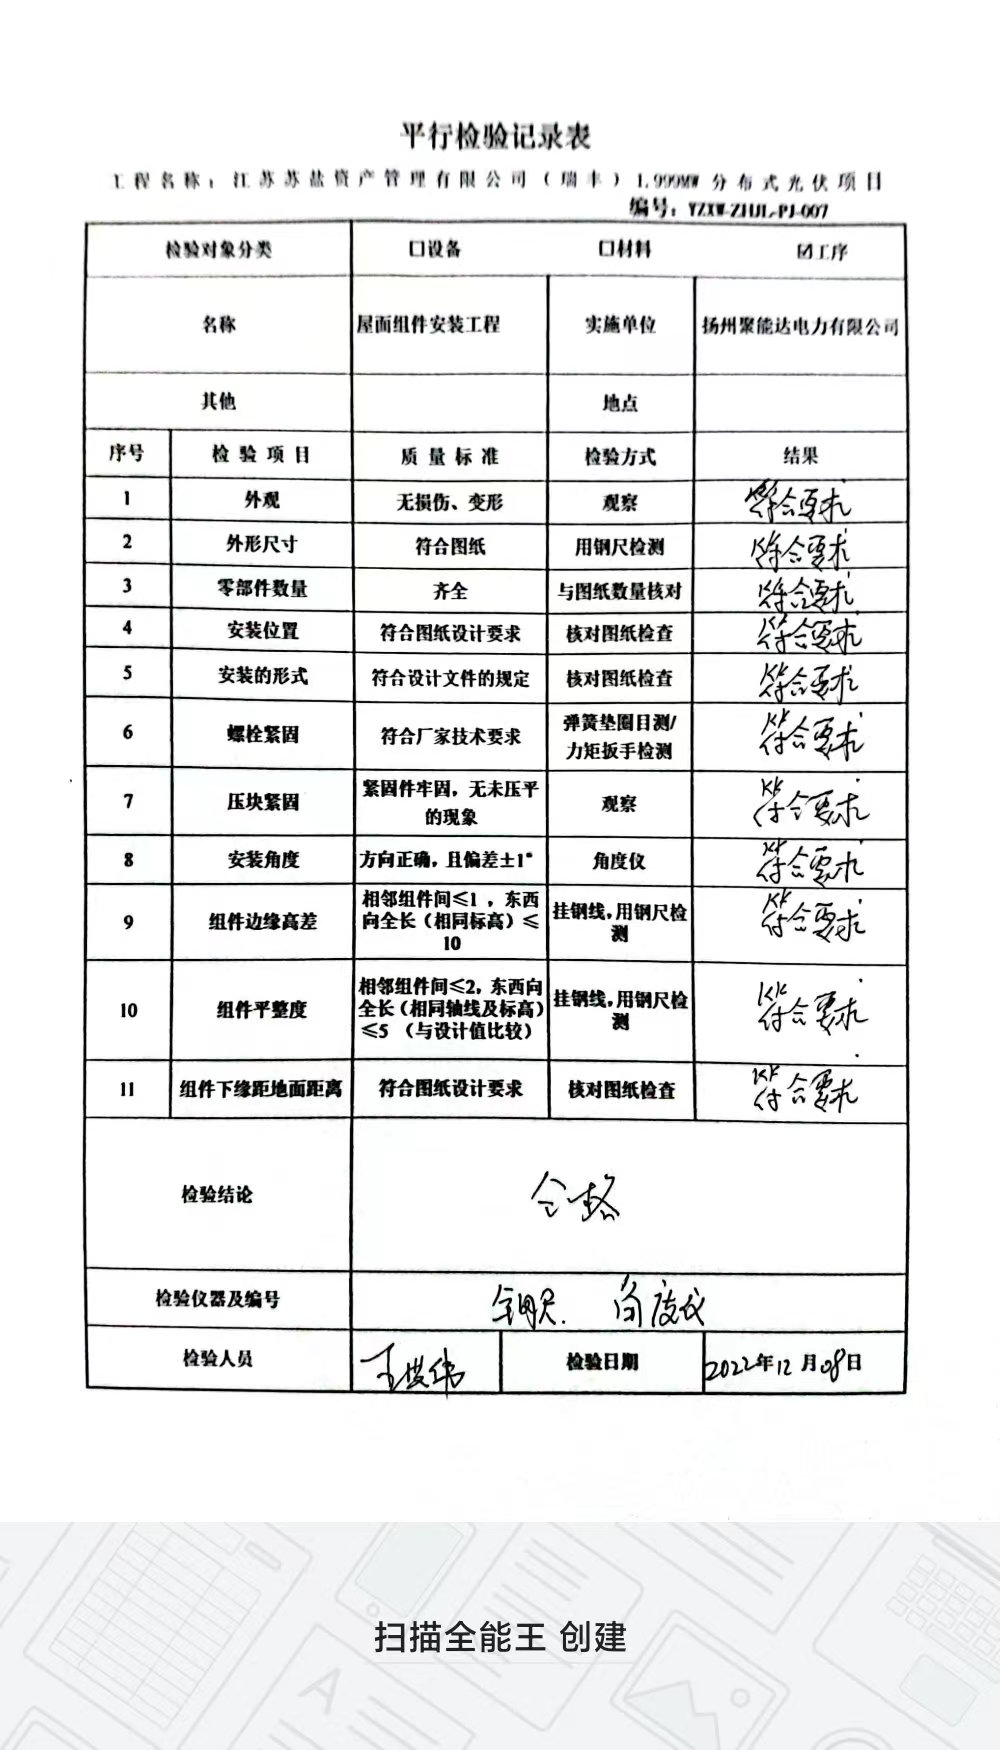 平行检验记录表
工程名称：江苏苏盐资产管理有限公司（瑞丰）1.999MW 分布式光伏项目
编号：YZXW-ZHJL-PJ-007
检验对象分类 □设备 □材料 ☑工序
名称 屋面组件安装工程 实施单位 扬州聚能达电力有限公司
其他 地点
序号 检验项目 质量标准 检验方式 结果
1 外观 无损伤、变形 观察 符合要求
2 外形尺寸 符合图纸 用钢尺检测 符合要求
3 零部件数量 齐全 与图纸数量核对 符合要求
4 安装位置 符合图纸设计要求 核对图纸检查 符合要求
5 安装的形式 符合设计文件的规定 核对图纸检查 符合要求
6 螺栓紧固 符合厂家技术要求 弹簧垫圈目测/
力矩扳手检测 符合要求
7 压块紧固 紧固件牢固，无未压平
的现象 观察 符合要求
8 安装角度 方向正确，且偏差±1° 角度仪 符合要求
9 组件边缘高差 相邻组件间≤1，东西
向全长（相同标高）≤
10 挂钢线，用钢尺检
测 符合要求
10 组件平整度 相邻组件间≤2，东西向
全长（相同轴线及标高）
≤5 （与设计值比较） 挂钢线，用钢尺检
测 符合要求
11 组件下缘距地面距离 符合图纸设计要求 核对图纸检查 符合要求
检验结论 合格
检验仪器及编号 钢尺. 角度仪
检验人员 检验日期 2022年12月08日
扫描全能王 创建